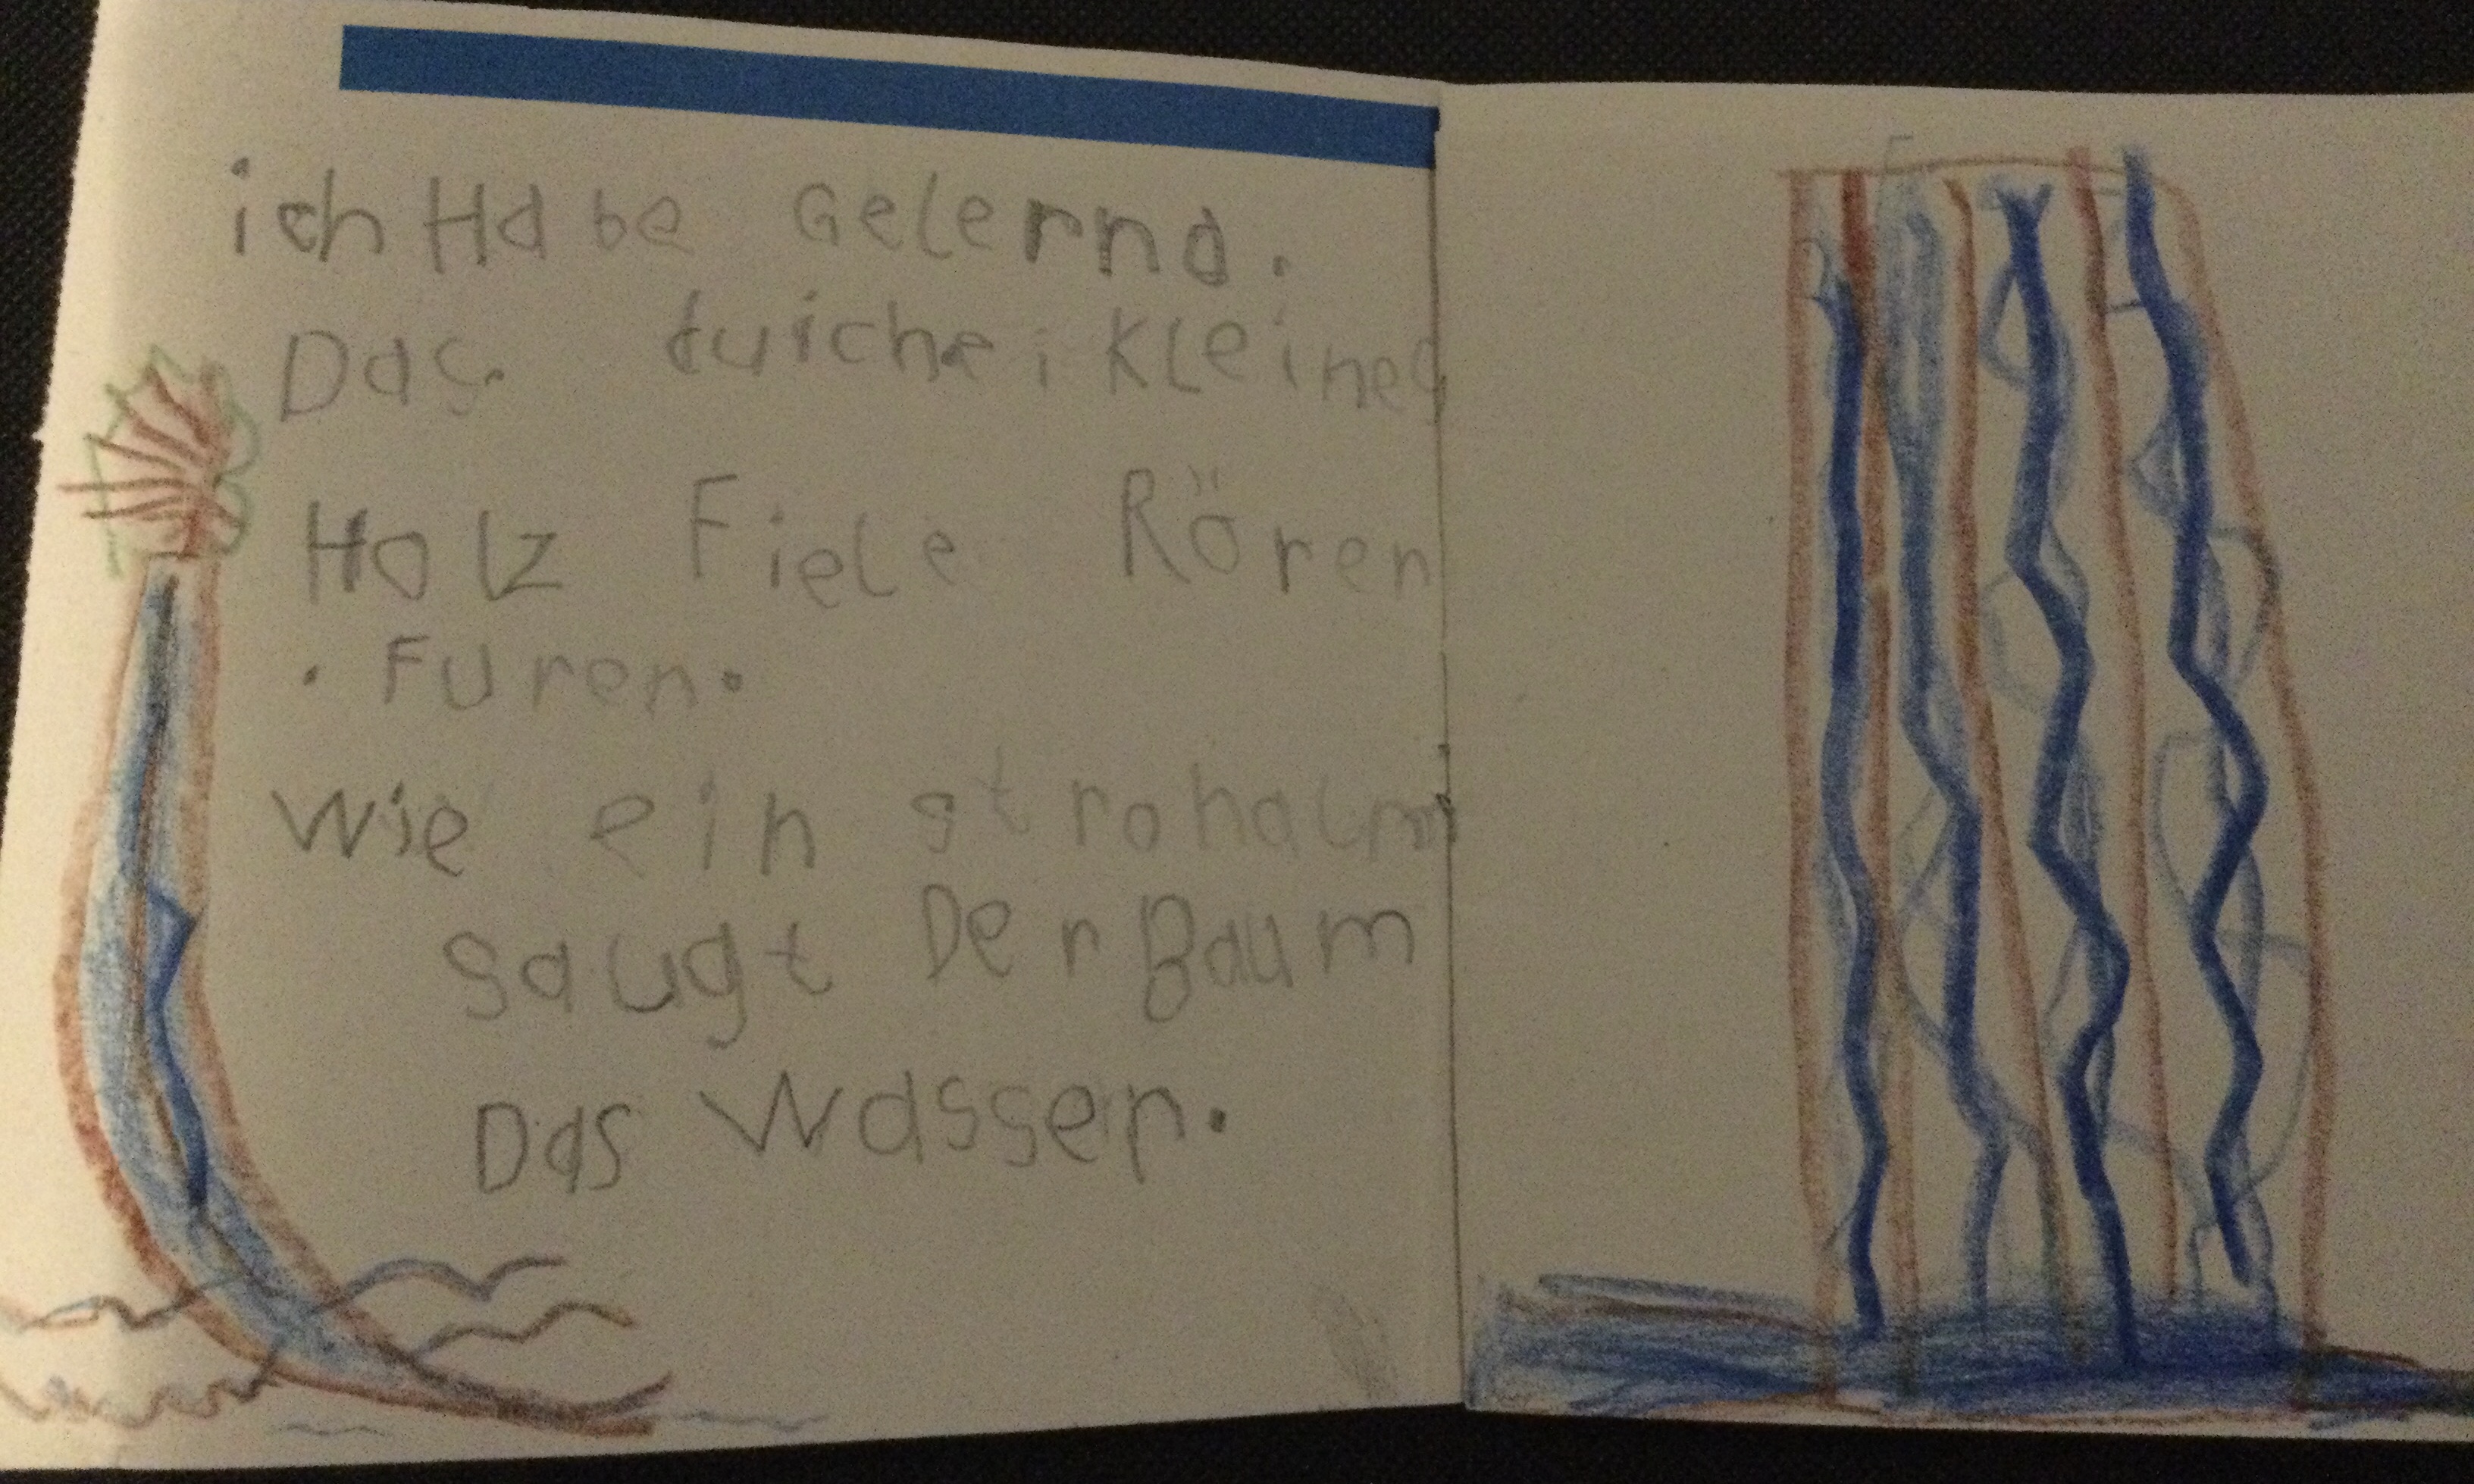 ich Habe Gelernd.
Das. duichei kleines
Holz Fiele Rören
. Furen.
Wie ein strohalm
saugt Der Baum
Das Wasser.